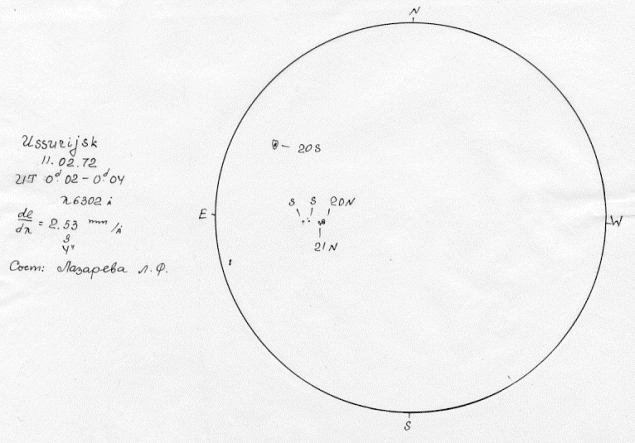 N
Ussurijsk
11.02.72
UT 0ᵈ.02 - 0ᵈ.04
λ 6302 Å
dl/dλ = 2.53 mm/Å
3
4"
Сост: Лазарева Л. Ф.
20S
E
S S 20N
21N
W
S